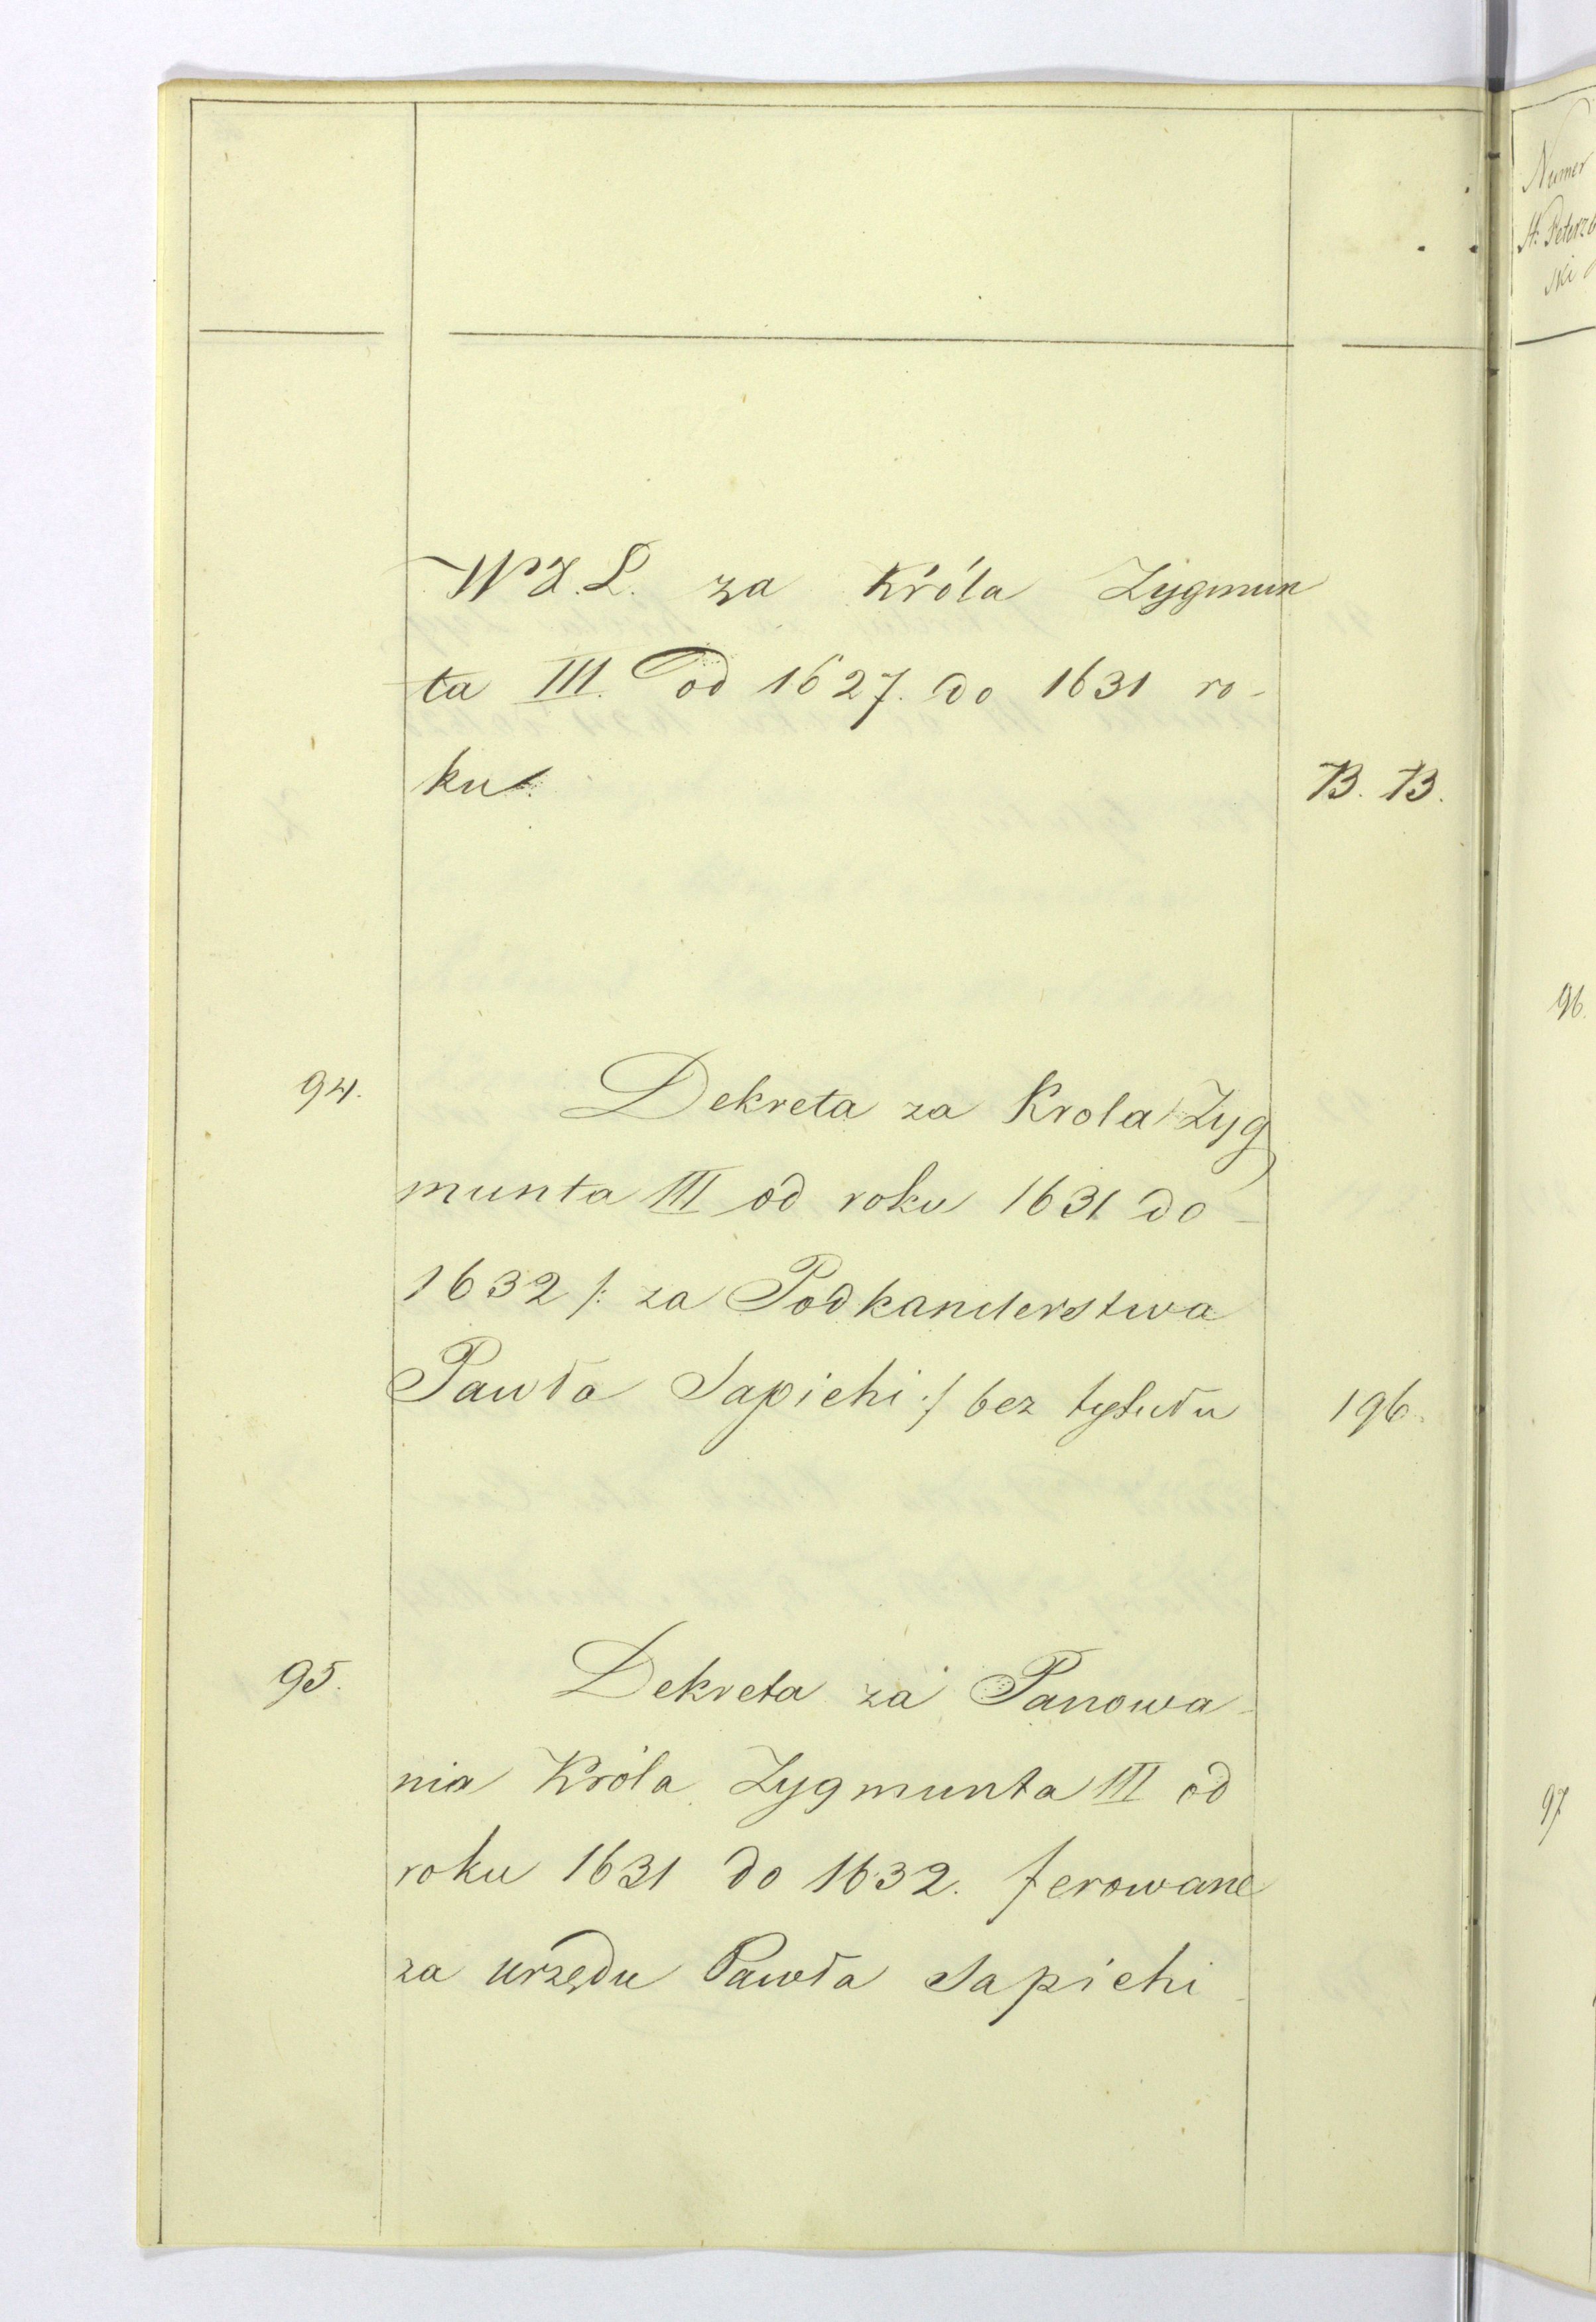 W X. L. za Króla Zygmun
ta III. od 1627. do 1631 ro-
ku.
B. B.
94.
Dekreta za Krola Zyg
munta III od roku 1631 do
1632 /: za Podkanclerstwa
Pawła Sapiehi :/ bez tytułu
196.
95.
Dekreta za Panowa-
nia Króla Zygmunta III od
roku 1631 do 1632. ferowane
za urzędu Pawła Sapiehi
Numer
St. Peterzb
ski
96.
97